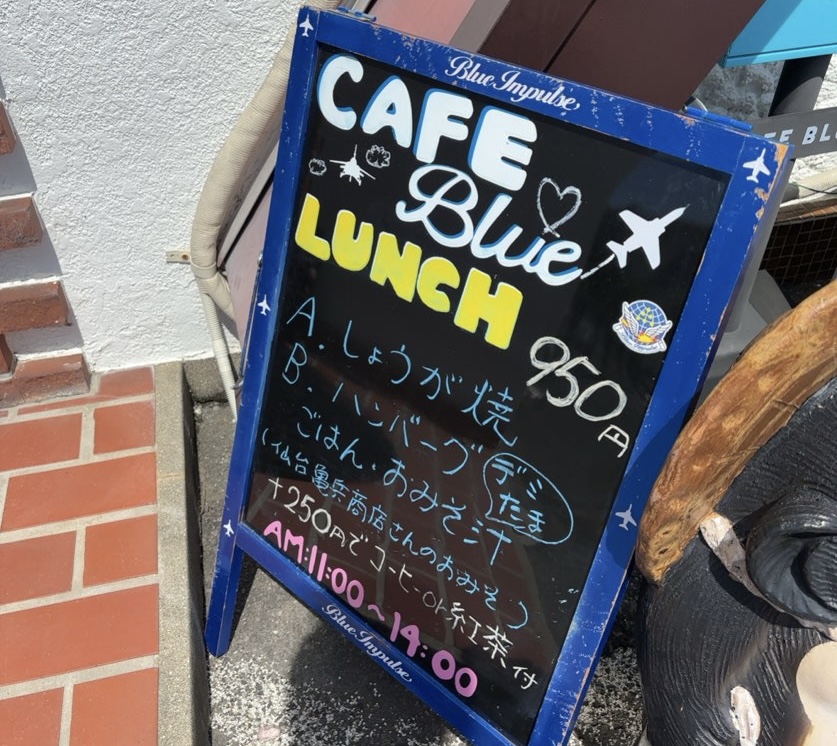 Blue Impulse
CAFE
Blue
LUNCH
950円
A. しょうが焼
B. ハンバーグ デミ たま
ごはん・おみそ汁
(仙台亀兵商店さんのおみそ)
+250円でコーヒーor紅茶付
AM:11:00~14:00
Blue Impulse